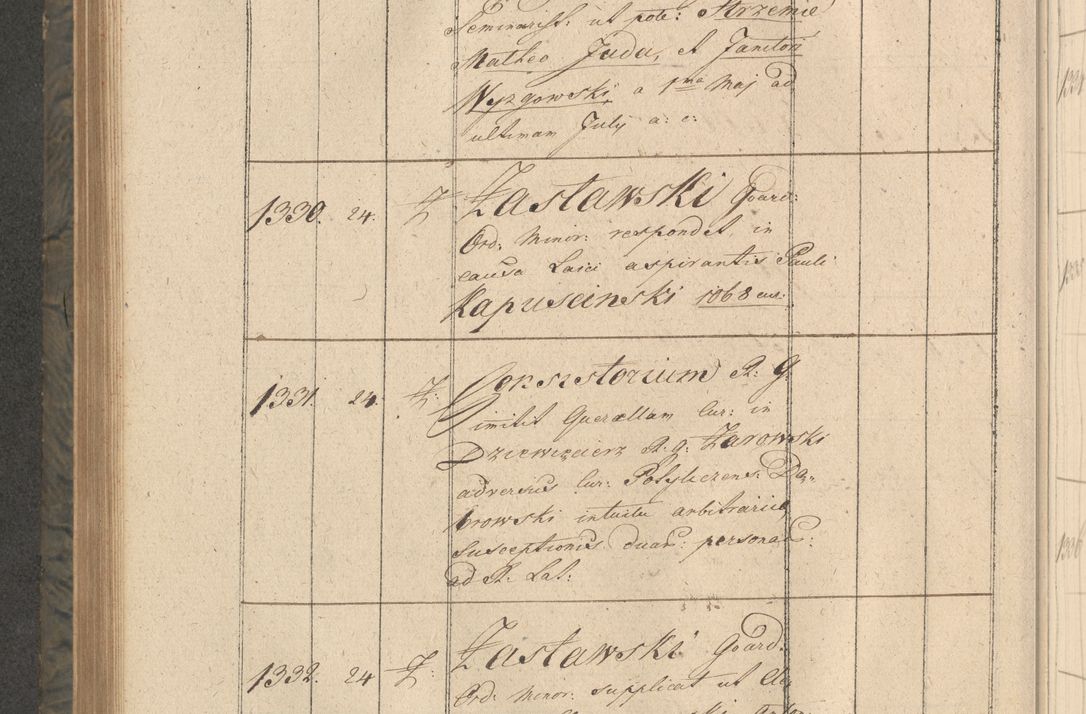 Seminarist: ut pote: Strzemie
Matheo Juda, et Janitori
Wyzgowski, a 1ma Maj ad
ultimam July a: c:
1330. 24. Z Zasławski Guard:
Ord: Minor: respondet in
causa Laici aspirantis Pauli
Kapuscinski 1068 cur:
1331. 24. Z: Consistorium R. G.
imitit Querellam Cur: in
Dziewięcierz R. g. Żarowski
adversus Cur: Potyliczens: Dą-
browski intuitu arbitrariae
Susceptionis duar: personar:
ad R. Lat:
1332. 24 Z: Zasławski Guard:
Ord: Minor: supplicat ut